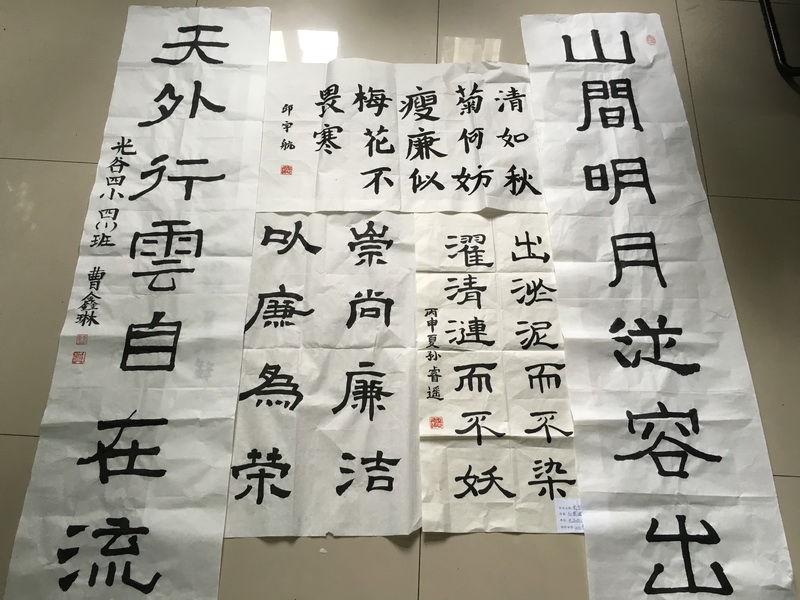 山間明月從容出
清如秋
菊何妨
瘦廉似
梅花不
畏寒
出淤泥而不染
濯清漣而不妖
丙申夏孙睿遥
崇尚廉洁
以廉為荣
天外行雲自在流
光谷四小 四(1)班 曹鑫琳